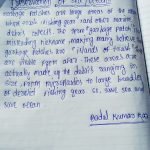 garbage patches are large areas of the ocean
where trash, fishing gear, and other marine
debris collects. The term "garbage patch" is
misleading nickname, making many believe that
garbage patches are "islands of trash" that
are visible from afar. These areas are
actually made up of debris ranging in
size from microplastics to large bundles
of derelict fishing gear. So, save sea and
save ocean
Badal Kumar